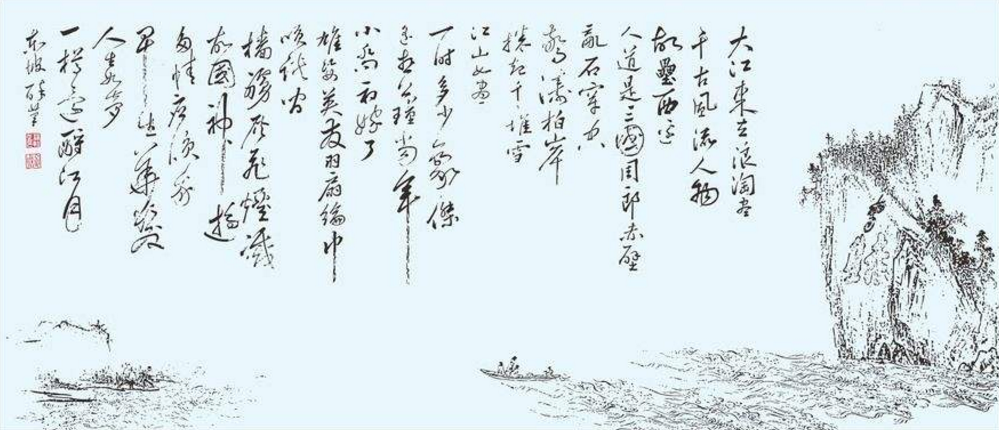 大江東去浪淘盡
千古風流人物
故壘西邊
人道是三國周郎赤壁
亂石穿空
驚濤拍岸
捲起千堆雪
江山如畫
一时多少豪傑
遙想公瑾當年
小喬初嫁了
雄姿英發羽扇綸巾
咲談間
檣艣灰飛煙滅
故國神遊
多情應咲我
早生華髮
人生如夢
一樽還酹江月
東坡醉筆